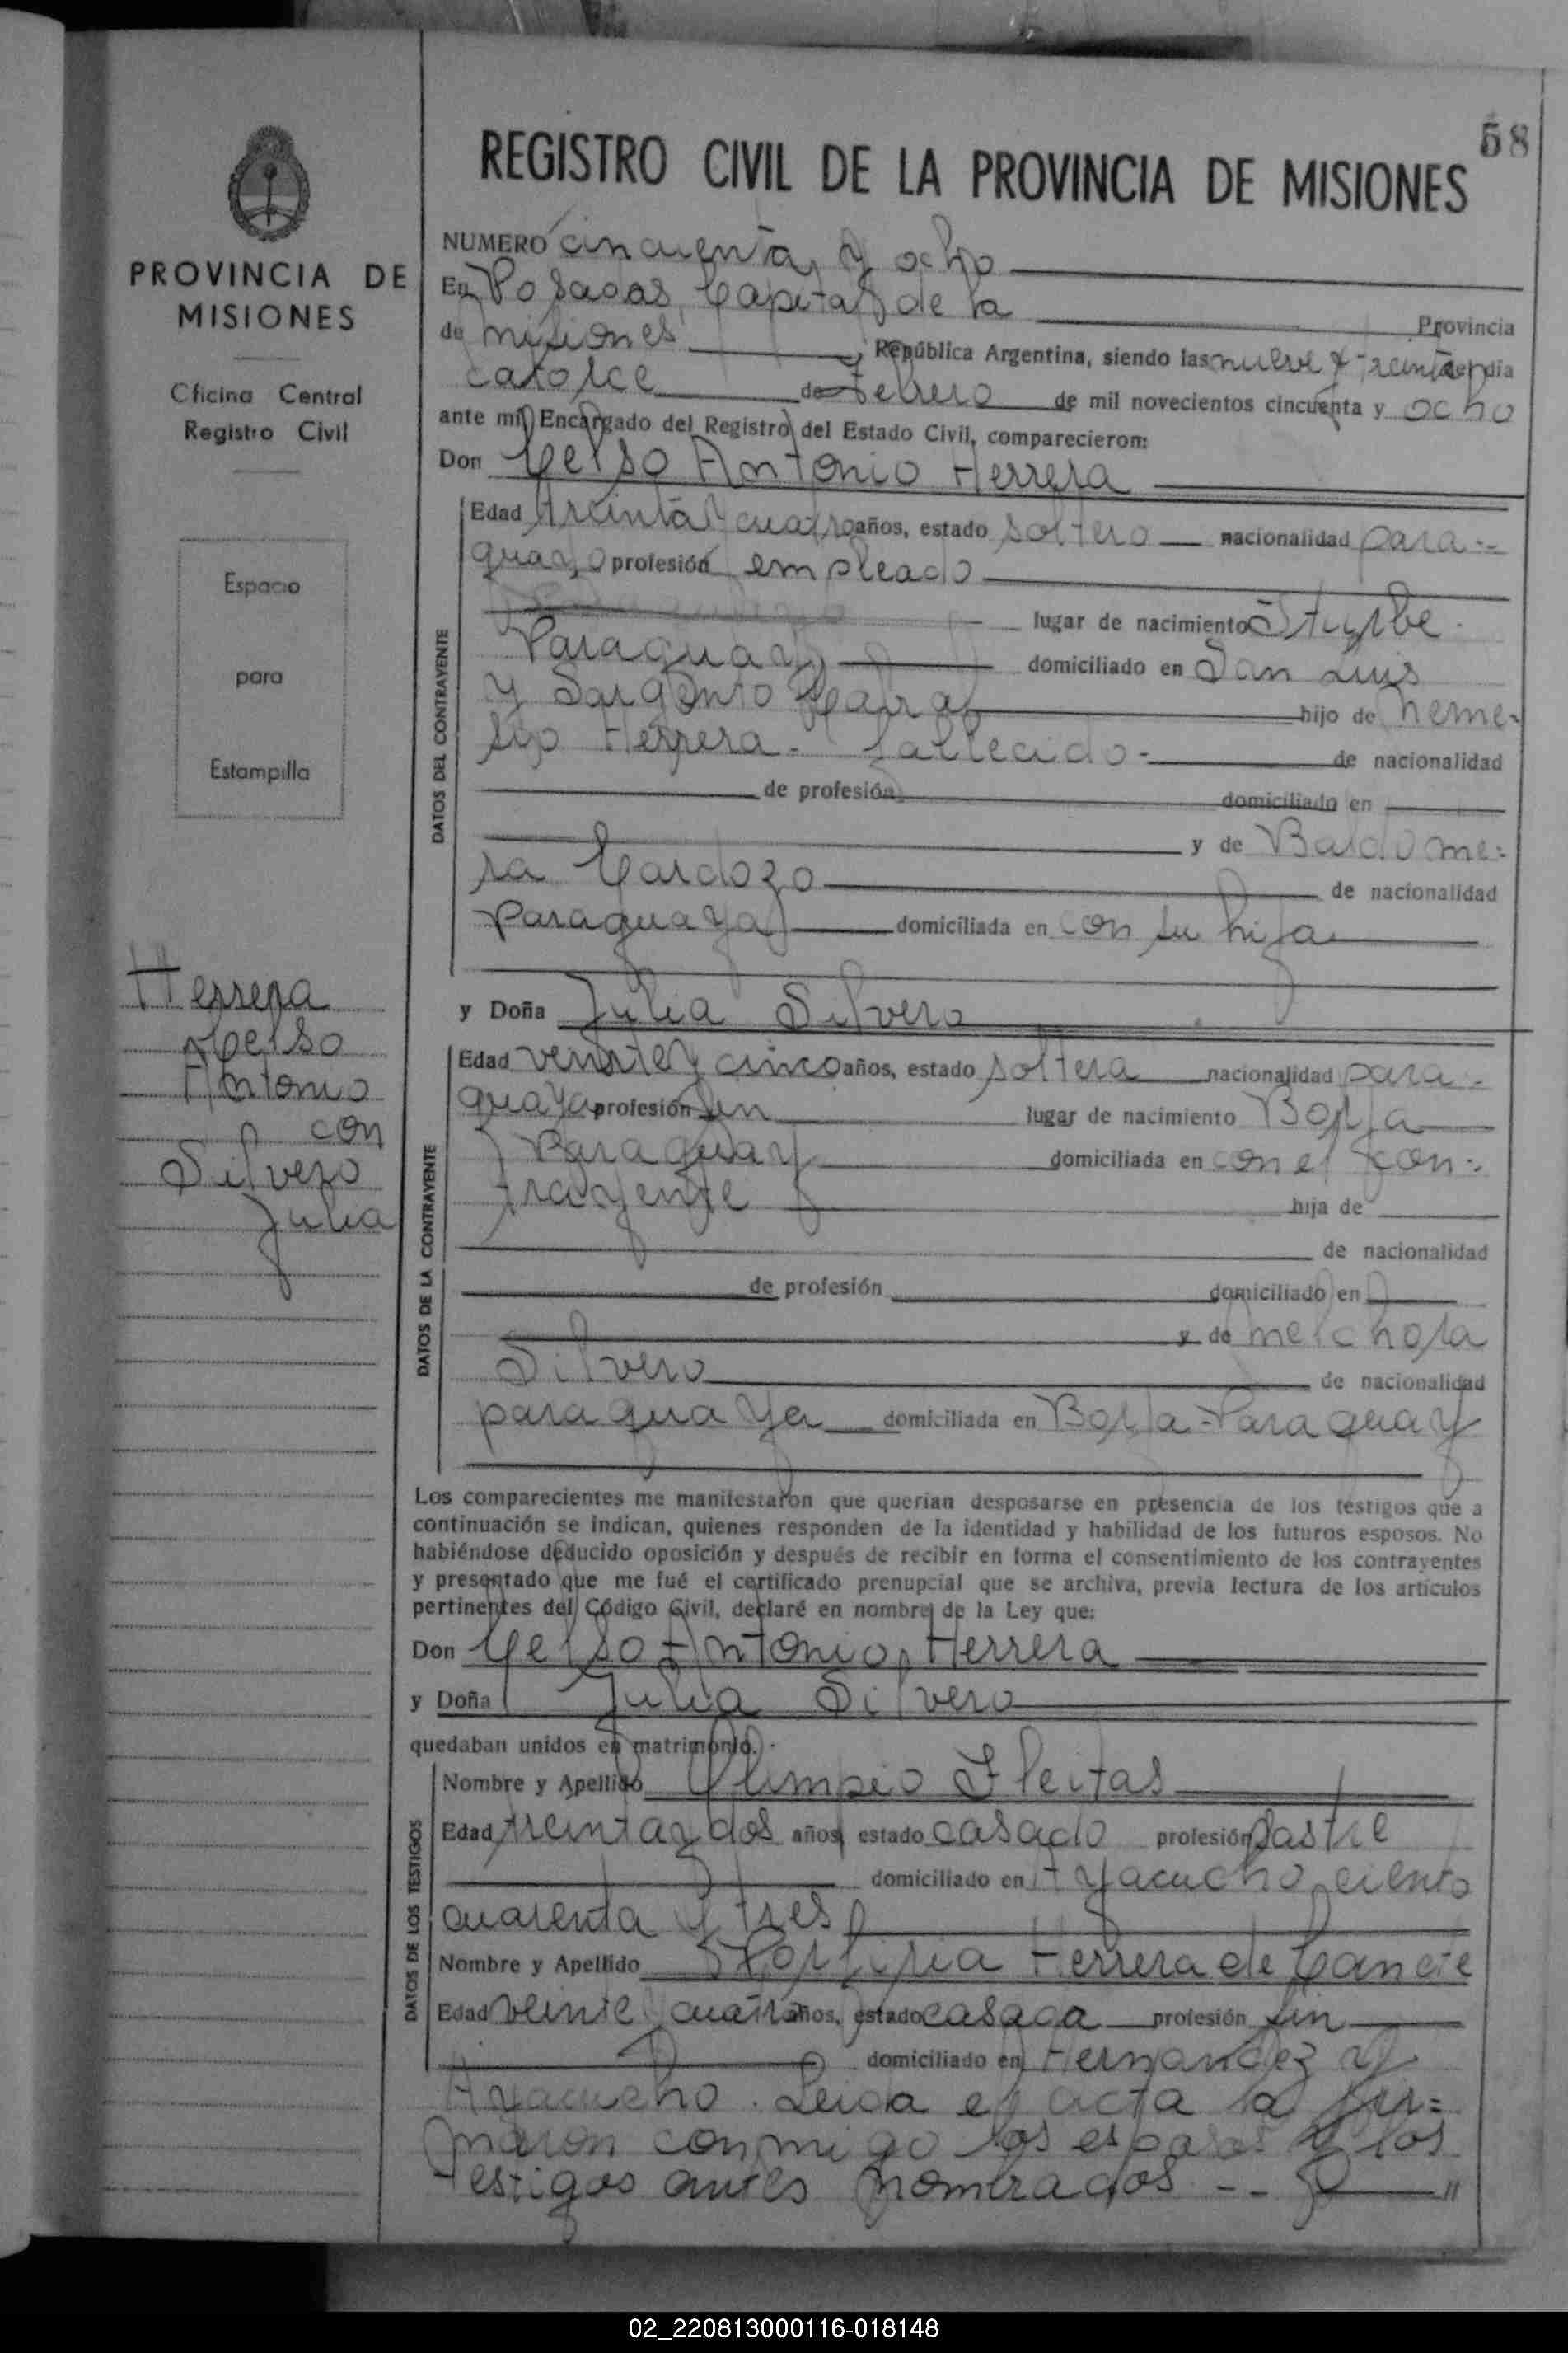 58
REGISTRO CIVIL DE LA PROVINCIA DE MISIONES
PROVINCIA DE
MISIONES
Oficina Central
Registro Civil
Espacio
para
Estampilla
Herrera
Celso
Antonio
con
Silvero
Julia
NUMERO cincuenta y ocho
En Posadas, Capital de la Provincia
de Misiones, República Argentina, siendo las nueve y treinta del día
catorce de Febrero de mil novecientos cincuenta y ocho
ante mi, Encargado del Registro del Estado Civil, comparecieron:
Don Celso Antonio Herrera
DATOS DEL CONTRAYENTE
Edad treinta y cuatro años, estado soltero nacionalidad para-
guayo profesión empleado
lugar de nacimiento Iturbe
Paraguay domiciliado en San Luis
y Sargento Cabral hijo de Neme-
sio Herrera - fallecido - de nacionalidad
de profesión domiciliado en
y de Baldome-
ra Cardozo de nacionalidad
paraguaya domiciliada en con su hija
y Doña Julia Silvero
DATOS DE LA CONTRAYENTE
Edad veinte y cinco años, estado soltera nacionalidad para-
guaya profesión sin lugar de nacimiento Borja
Paraguay domiciliada en con el con-
trayente hija de
de nacionalidad
de profesión domiciliado en
y de Melchora
Silvero de nacionalidad
paraguaya domiciliada en Borja-Paraguay
Los comparecientes me manifestaron que querían desposarse en presencia de los testigos que a
continuación se indican, quienes responden de la identidad y habilidad de los futuros esposos. No
habiéndose deducido oposición y después de recibir en forma el consentimiento de los contrayentes
y presentado que me fué el certificado prenupcial que se archiva, previa lectura de los artículos
pertinentes del Código Civil, declaré en nombre de la Ley que:
Don Celso Antonio Herrera
y Doña Julia Silvero
quedaban unidos en matrimonio.
DATOS DE LOS TESTIGOS
Nombre y Apellido Olimpio Fleitas
Edad treinta y dos años, estado casado profesión sastre
domiciliado en Ayacucho ciento
cuarenta y tres
Nombre y Apellido Porfiria Herrera de
Edad veinte y cuatro años, estado casada profesión sin
domiciliado en Hernandez y
Ayacucho. Leida el acta la fir=
maron conmigo los esposos y los
testigos antes nombrados --
02_220813000116-018148